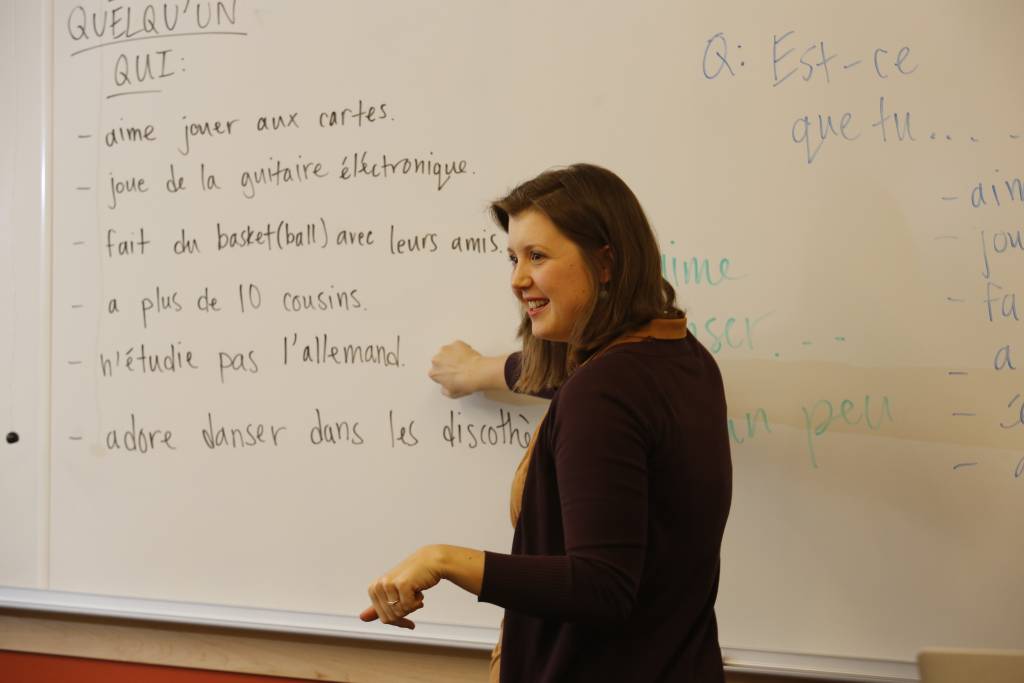 QUELQU'UN
QUI:
- aime jouer aux cartes.
- joue de la guitaire éléctronique.
- fait du basket(ball) avec leurs amis.
- a plus de 10 cousins.
- n'étudie pas l'allemand.
- adore danser dans les
Q: Est-ce
que tu.....
- 
- 
- 
- a
- 
- 
aime
...
un peu